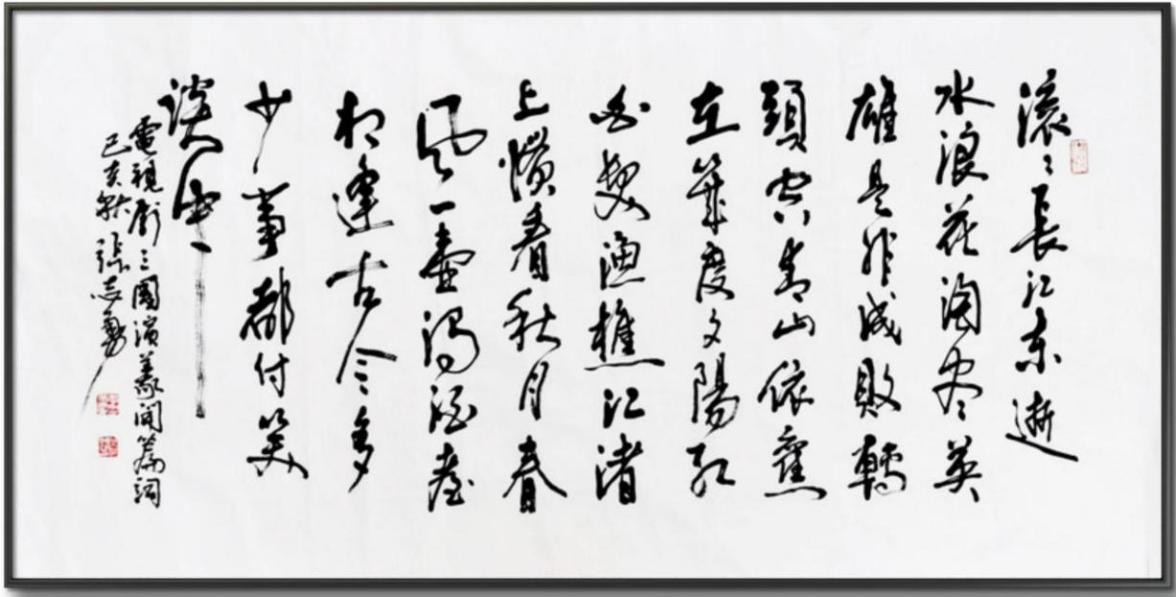 滚〻長江东逝
水浪花淘尽英
雄是非成敗轉
頭空青山依舊
在幾度夕陽红
白髮渔樵江渚
上慣看秋月春
風一壶濁酒喜
相逢古今多
少事都付笑
談中
電視劇三國演義開篇詞
己亥秋張志勇